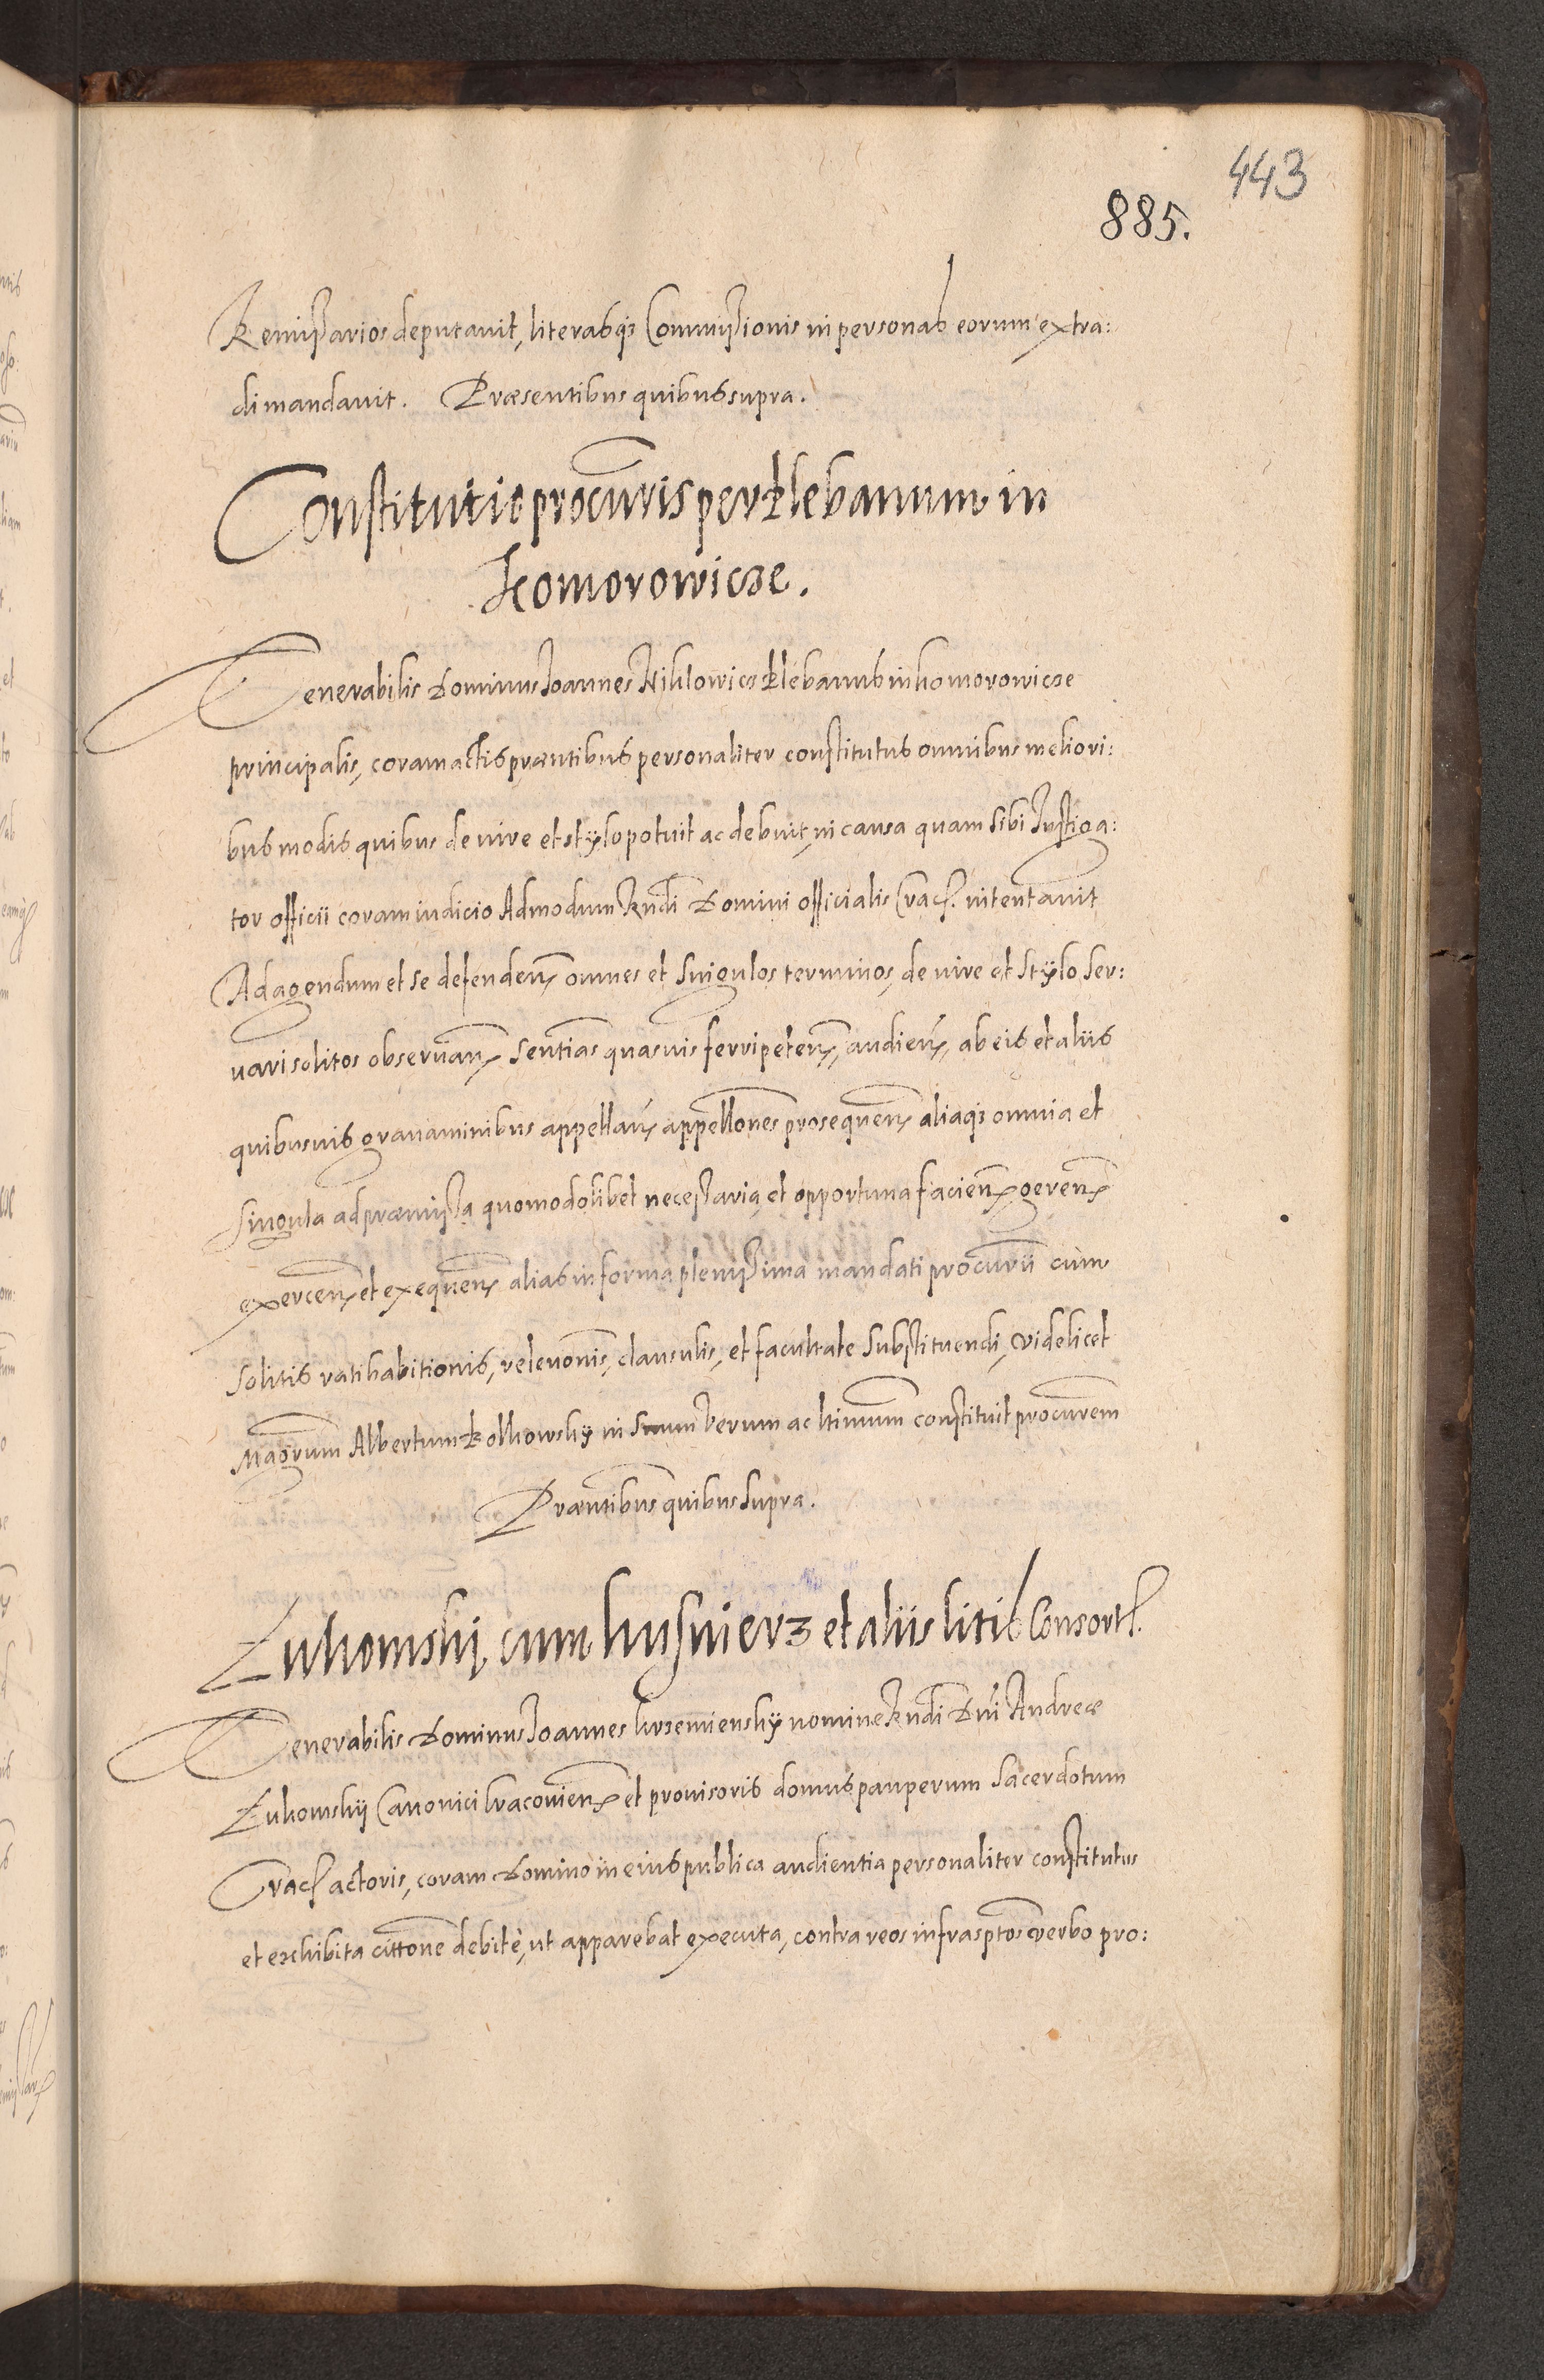 443
885.
Remissarios deputauit, literasq3 Commissionis in personas eorum extra:
di mandauit. Præsentibus quibus supra.
Constitutio procuris per Plebanum in
Komorowicze.
Venerabilis Dominus Joannes Niklowicz Plebanus in Komorowicze
principalis, coram actis præntibus personaliter constitutus omnibus meliori:
bus modis quibus de iure et stÿlo potuit ac debuit, in causa quam sibi Instiga:
tor officii coram iudicio Admodum Rndi Domini officialis Crac. intentauit
Ad agendum et se defenden omnes et singulos terminos, de iure et stÿlo ser:
uari solitos obseruan sentias quasuis ferri peten, audien, ab eis et aliis
quibusuis grauaminibus appellan appellones prosequen aliaq3 omnia et
singula ad præmissa quomodolibet necessaria et opportuna facien, geren
exercen et exequen alias in forma plenissima mandati procurii cum
solitis ratihabitionis, releuonis, clausulis, et facultate substituendi, videlicet
Magrum Albertum Polkowskÿ in suum verum ac ltimum constituit procurem
Præntibus quibus supra.
Zukowski cum kusnierz et aliis litis Consort.
Venerabilis Dominus Joannes krzemienskÿ nomine Rndi Dni Andreæ
Zukowskij Canonici Cracouien et prouisoris domus pauperum Sacerdotum
Crac actoris, coram Domino in eius publica audientia personaliter constitutus
et exhibita cittone debitè, ut apparebat executa, contra reos infrasptos verbo pro: